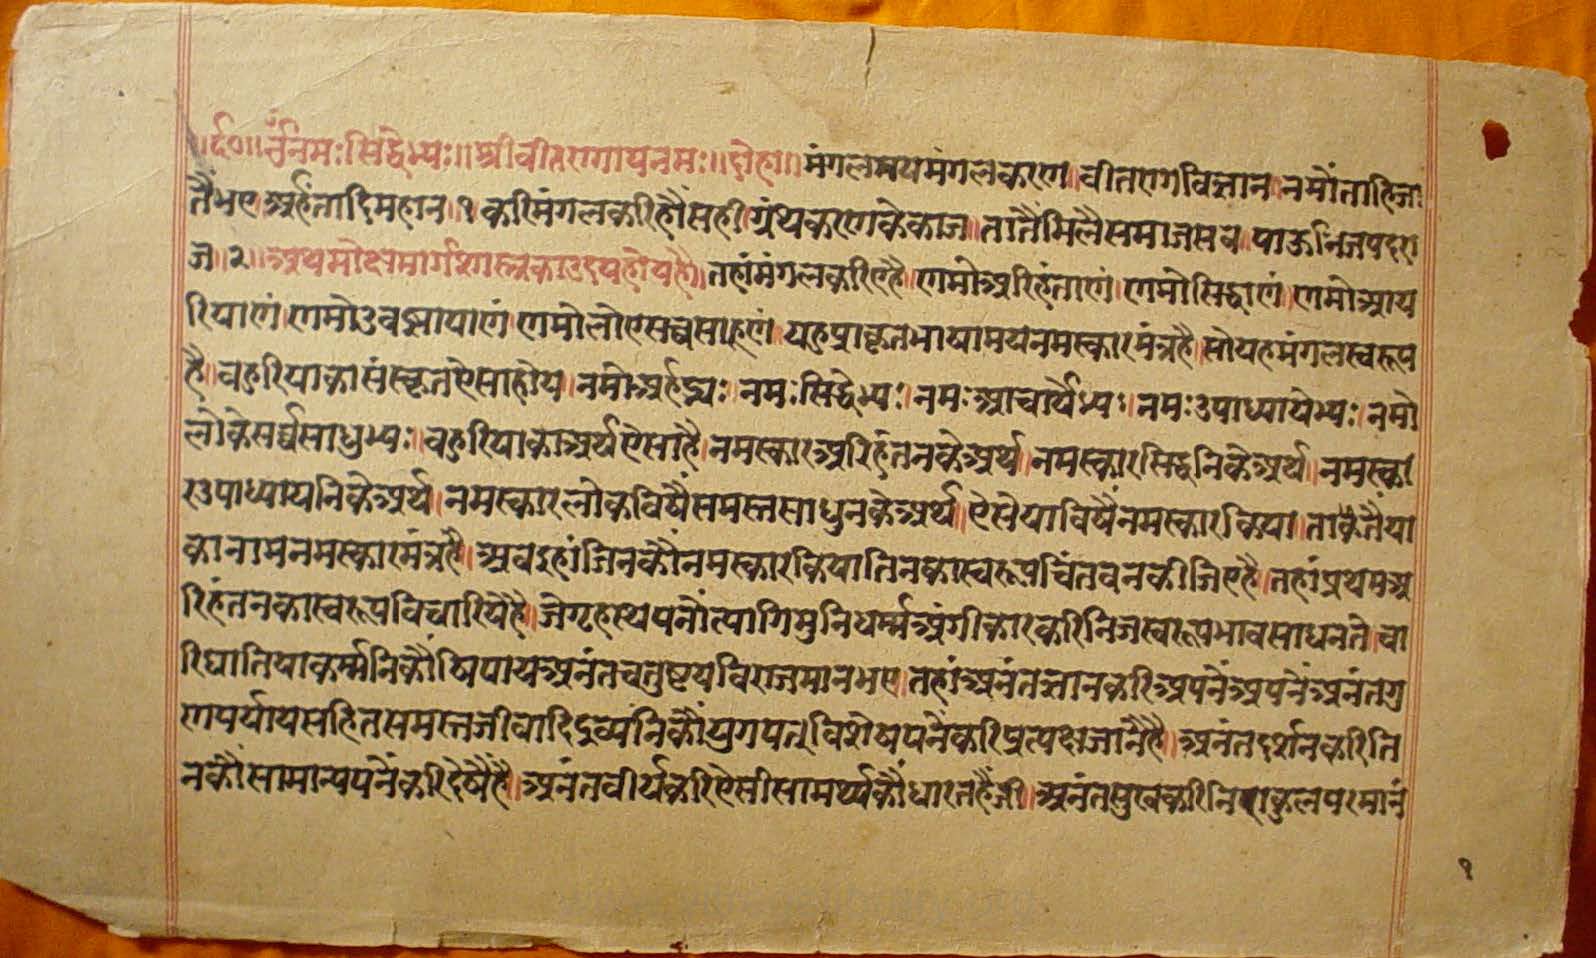 ॥र्द०॥ ॐ नमः सिद्धेभ्यः॥ श्री वीतरागाय नमः॥ दोहा॥ मंगलमय मंगलकरण। वीतराग विज्ञान। नमौं ताहि जा
तैं भए अर्हंतादि महान।१। करि मंगल करिहौं सही। ग्रंथ करण के काज। तातैं मिलै समाज सब। पाऊं निजपद रा
ज।२। अथ मोक्षमार्ग शास्त्र का उदय होय है। तहां मंगल करिए है। णमो अरिहंताणं। णमो सिद्धाणं। णमो आय
रियाणं। णमो उवज्झायाणं। णमो लोए सव्वसाहूणं। यहु प्राकृत भाषामय नमस्कारमंत्र है। सो यह मंगलस्वरूप
है। बहुरि याका संस्कृत ऐसा होय। नमो अर्हद्भ्यः। नमः सिद्धेभ्यः। नमः आचार्येभ्यः। नमः उपाध्यायेभ्यः। नमो
लोके सर्व्वसाधुभ्यः। बहुरि याका अर्थ ऐसा है। नमस्कार अरिहंतन के अर्थ। नमस्कार सिद्धनि के अर्थ। नमस्का
र उपाध्यायनि के अर्थ। नमस्कार लोक विषैं समस्त साधुन के अर्थ। ऐसे या विषैं नमस्कार किया। तातैं या
का नाम नमस्कारमंत्र है। अब इहां जिनकौं नमस्कार किया तिनका स्वरूप चिंतवन कीजिए है। तहां प्रथम अ
रिहंतन का स्वरूप विचारिये है। जे गृहस्थपनौं त्यागि मुनिधर्म्म अंगीकार करि निजस्वरूपभाव साधन तें चा
रि घातिया कर्म्मनि कौं षिपाय अनंतचतुष्टय विराजमान भए। तहां अनंतज्ञान करि अपनें अपनें अनंत गु
ण पर्याय सहित समस्त जीवादि द्रव्यनि कौं युगपत् विशेषपनैं करि प्रत्यक्ष जानै है। अनंतदर्शन करि ति
न कौं सामान्यपनैं करि देषैं है। अनंतवीर्य करि ऐसी सामर्थ्य कौं धारत हैं जी। अनंतसुख करि निराकुल परमानं
१